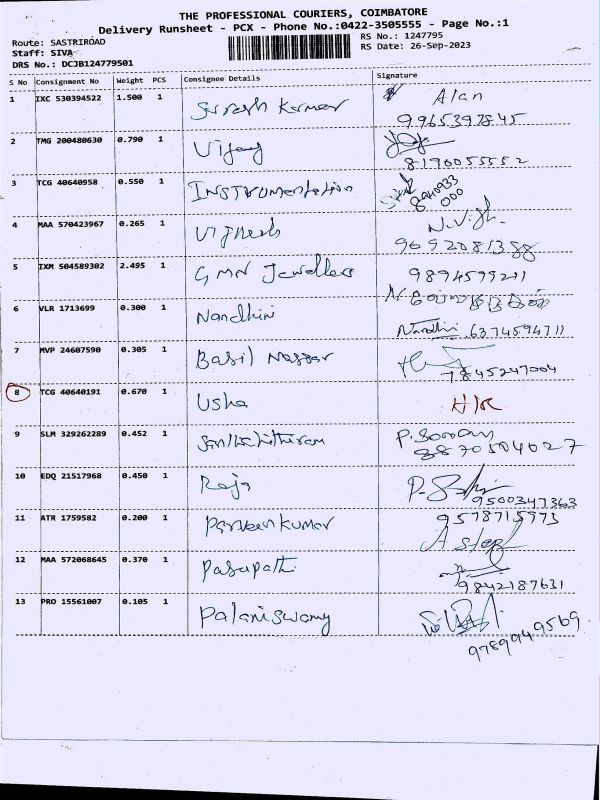 THE PROFESSIONAL COURIERS, COIMBATORE
Delivery Runsheet - PCX - Phone No.:0422-3505555 - Page No.:1
Route: SASTRIROAD
Staff: SIVA
DRS No.: DCJB124779501
RS No.: 1247795
RS Date: 26-Sep-2023
S No Consignment No Weight PCS Consignee Details Signature
1 IXC 530394522 1.500 1 Suresh Kumar Alan
9965397845
2 TMG 200480630 0.790 1 Vijay
8190055552
3 TCG 40640958 0.550 1 INSTRUMentation
8940933
000
4 MAA 570423967 0.265 1 Vignesh N.Vigh.
9692081388
5 IXM 504589302 2.495 1 GMN Jewellers 9894599211
6 VLR 1713699 0.300 1 Nandhini
Nandhini 6374594711
7 MVP 24607590 0.305 1 Basil Nazzar
7845247004
8 TCG 40640191 0.670 1 Usha
9 SLM 329262289 0.452 1 P.
8870504027
10 EDQ 21517968 0.450 1 Raja P.
9500347363
11 ATR 1759582 0.200 1 Parveen Kumar 9578715973
12 MAA 572068645 0.370 1 Pasupathi
9842187631
13 PRO 15561007 0.105 1 Palaniswamy
9789949569